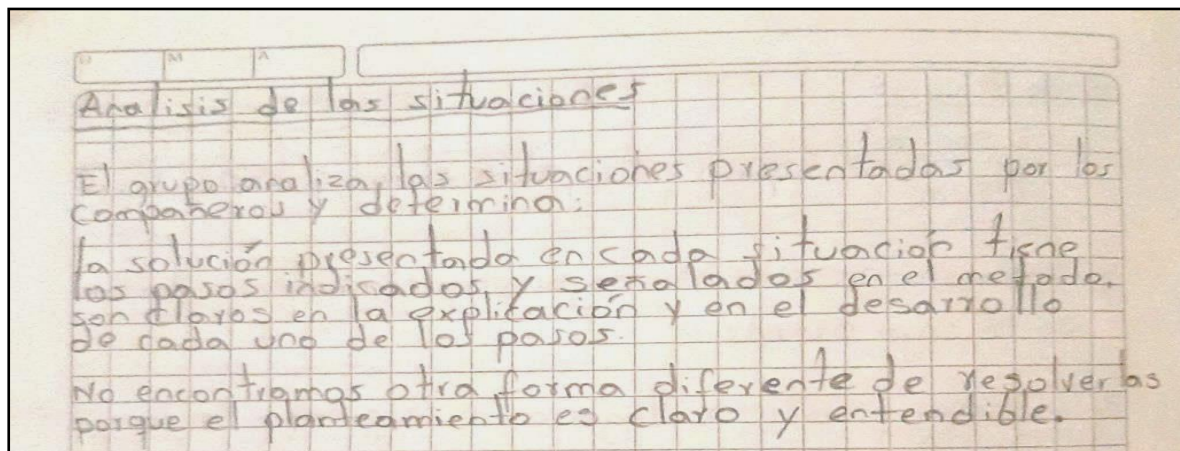 D M A
Analisis de las situaciones
El grupo analiza, las situaciones presentadas por los
compañeros y determina:
la solución presentada en cada situación tiene
los pasos indicados y señalados en el metodo.
son claros en la explicación y en el desarrollo
de cada uno de los pasos.
No encontramos otra forma diferente de resolverlas
porque el planteamiento es claro y entendible.